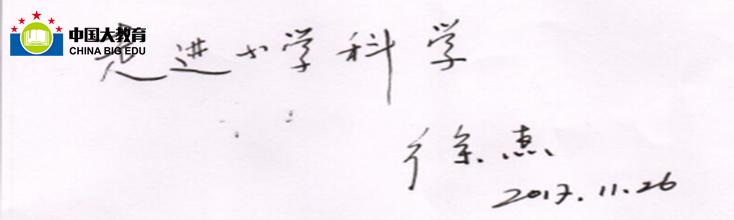 中国大教育
CHINA BIG EDU
走进小学科学
徐
2017.11.26